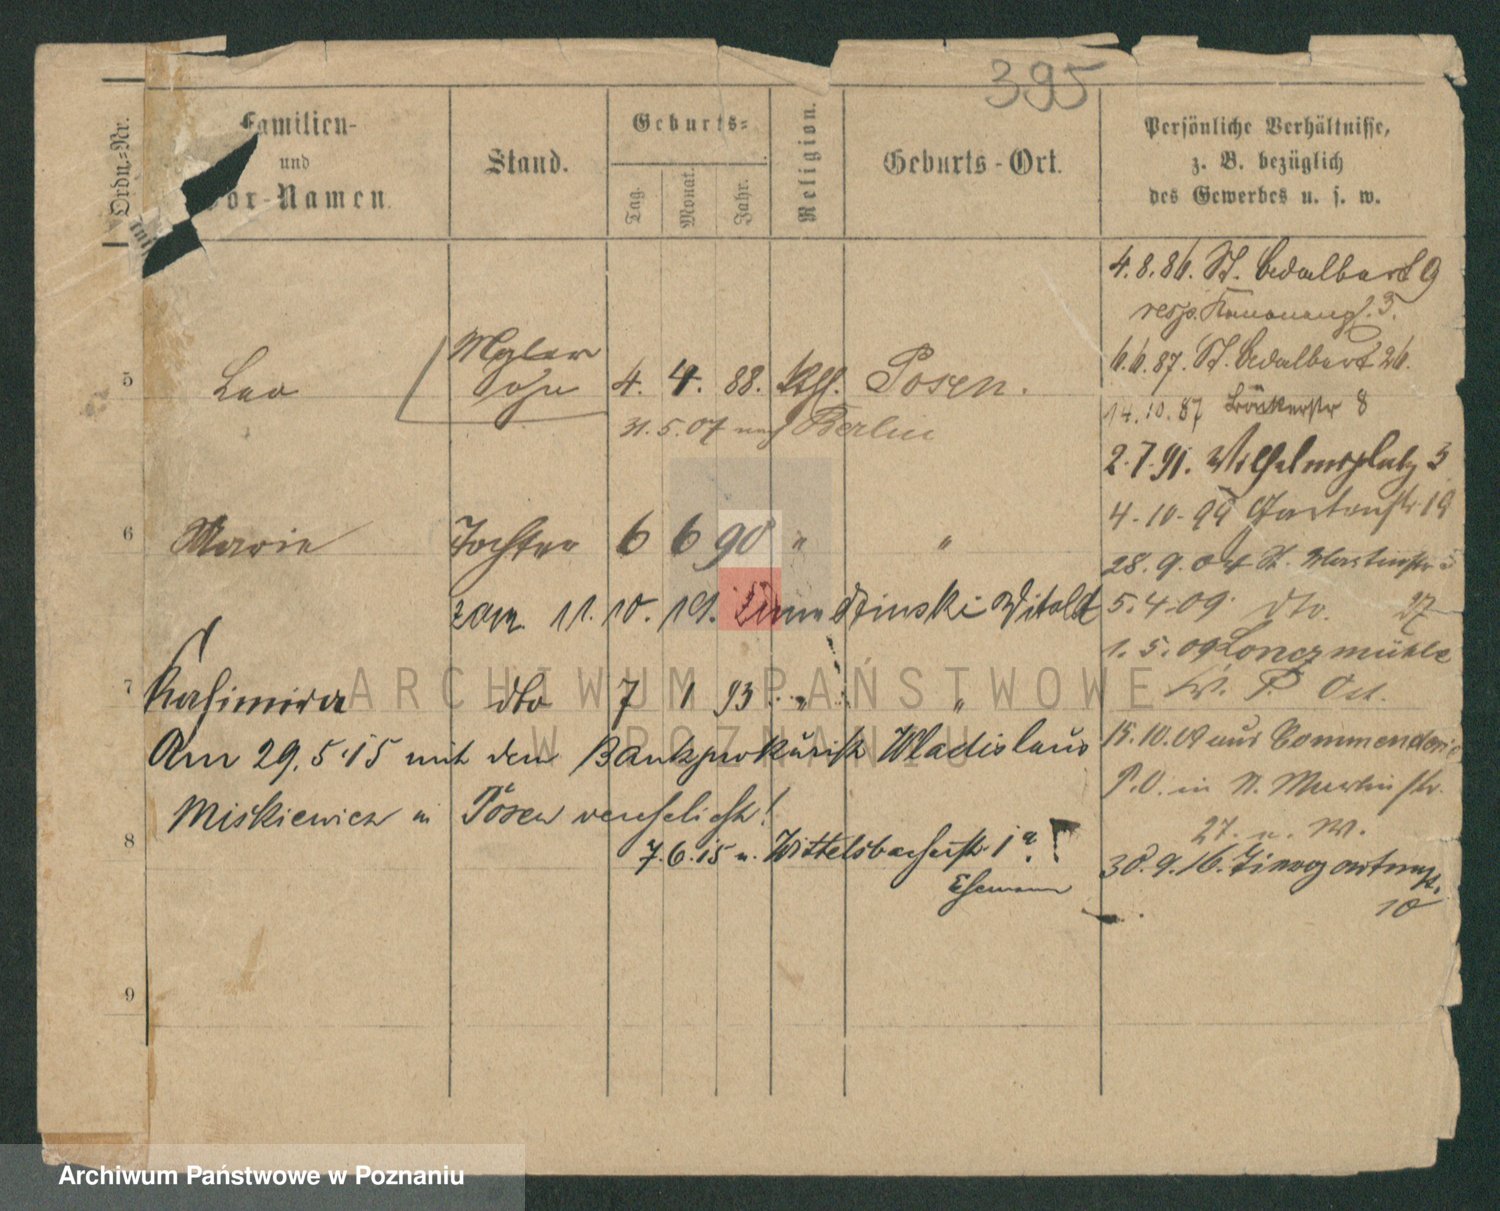 395
Ordn.-Nr.
Familien-
und
Vor-Namen.
Stand.
Geburts-
Tag.
Monat.
Jahr.
Religion.
Geburts-Ort.
Persönliche Verhältnisse,
z. B. bezüglich
des Gewerbes u. s. w.
4.8.86. St. Adalbert 9
resp. Kanoneng. 3.
Maler
6.6.87. St. Adalbert 26.
5 Leo Sohn 4. 4. 88. kth. Posen.
14.10.87 8
31.5.07 nach Berlin
2.7.91. Wilhelmsplatz 3
4.10.99 Gartenstr 19
6 Marie Tochter 6 6 90 " "
28.9.04 St. Martinstr
zam. 11. 10. 19. Witold
5.4.09. dto. 27
1.5.09 Loncz mühle
7 Kasimira dto 7 1 93 " "
Kr. P. Ost.
Am 29.5.15 mit dem Bankprokurist Wladislaus
15.10. aus Commenderie
P.O. in St. Martinstr.
Miskiewicz in Posen verehelicht!
27. u. W.
8
7.6.15 n. Wittelsbacherstr. 1a.
Ehemann
30.9.16.
10
9
ARCHIWUM PAŃSTWOWE
W POZNANIU
Archiwum Państwowe w Poznaniu